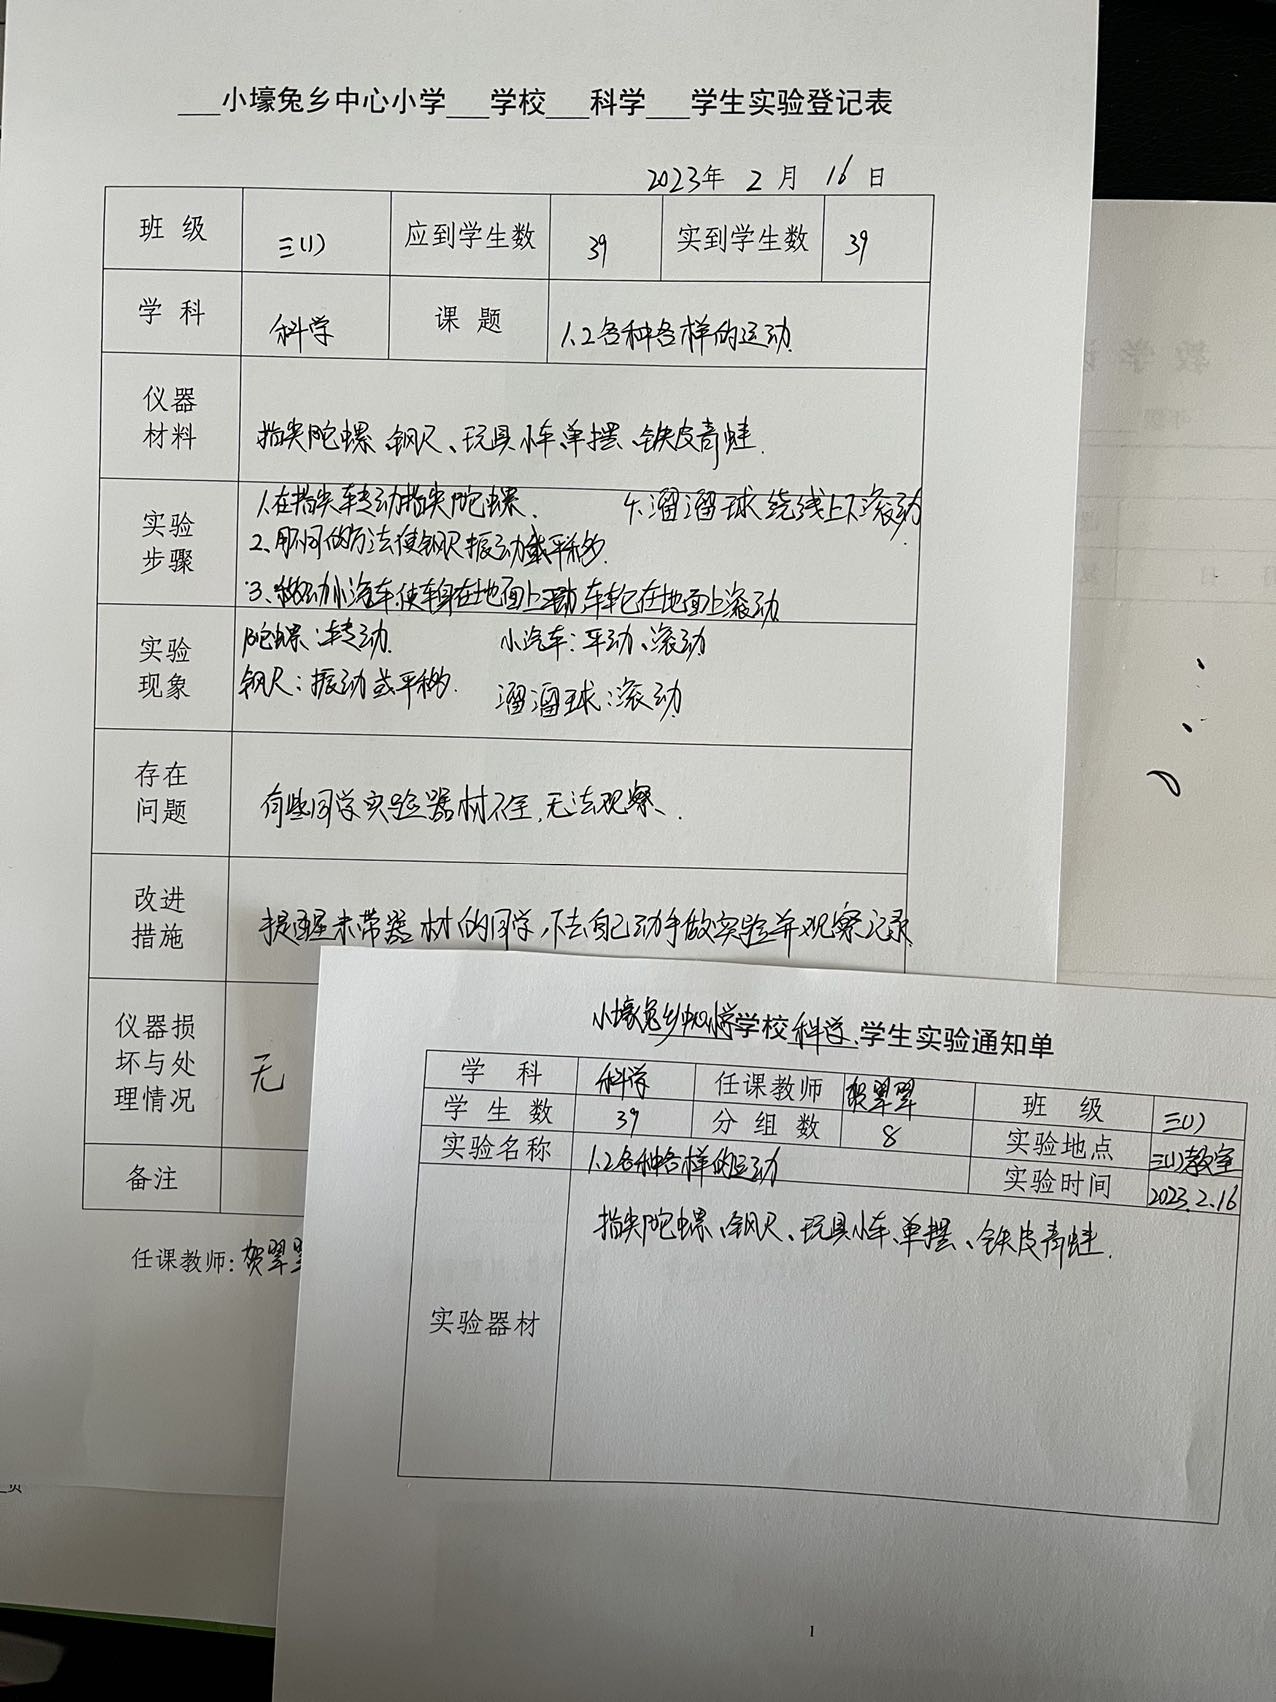 ___小壕兔乡中心小学___学校___科学___学生实验登记表
2023年 2 月 16 日
班 级 三(1) 应到学生数 39 实到学生数 39
学 科 科学 课 题 1.2各种各样的运动
仪器
材料
指尖陀螺、钢尺、玩具小车、单摆、铁皮青蛙.
实验
步骤
1.在指尖转动指尖陀螺. 4.溜溜球绕线上下滚动.
2、用不同的方法使钢尺振动或平移.
3、移动小汽车,使车身在地面上平动,车轮在地面上滚动
实验
现象
陀螺:转动. 小汽车:平动、滚动
钢尺:振动或平移. 溜溜球:滚动
存在
问题
有些同学实验器材不全,无法观察.
改进
措施
提醒未带器材的同学,下去自己动手做实验并观察记录
仪器损
坏与处
理情况
无
备注
任课教师:贺翠
小壕兔乡中心小学学校科学学生实验通知单
学 科 科学 任课教师 贺翠翠 班 级 三(1)
学 生 数 39 分 组 数 8 实验地点 三(1)教室
实验名称 1.2各种各样的运动 实验时间 2023.2.16
实验器材
指尖陀螺、钢尺、玩具小车、单摆、铁皮青蛙.
1